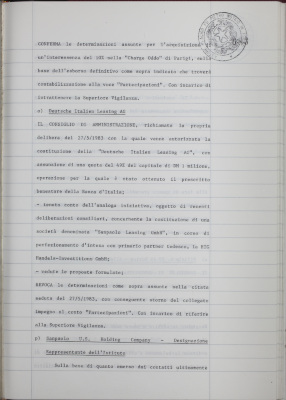 CONFERMA le determinazioni assunte per l'acquisizione di
un'interessenza del 10% nella "Charge Odds" di Parigi, nella
base dell'esborso definitivo come sopra indicato che troverà
contabilizzazione alla voce "Partecipazioni". Con incarico di
intrattenere la Superiore Vigilanza.
o) Deutsche Italien Leasing AG
IL CONSIGLIO DI AMMINISTRAZIONE, richiamata la propria
delibera del 27/5/1983 con la quale venne autorizzata la
costituzione della "Deutsche Italien Leasing AG", con
assunzione di una quota del 40% del capitale di DM 1 milione,
operazione per la quale è stato ottenuto il prescritto
benestare della Banca d'Italia;
- tenuto conto dell'analoga iniziativa, oggetto di recenti
deliberazioni consiliari, concernente la costituzione di una
società denominata "Sanpaolo Leasing GmbH", in corso di
perfezionamento d'intesa con primario partner tedesco, la
GmbH;
- udite le proposte formulate;
REVOCA le determinazioni come sopra assunte nella citata
seduta del 27/5/1983, con conseguente storno del collegato
impegno al conto "Partecipazioni". Con incarico di riferire
alla Superiore Vigilanza.
p) Sanpaolo U.S. Holding Company - Designazione
Rappresentante dell'Istituto
Sulla base di quanto emerso dai contatti ultimamente